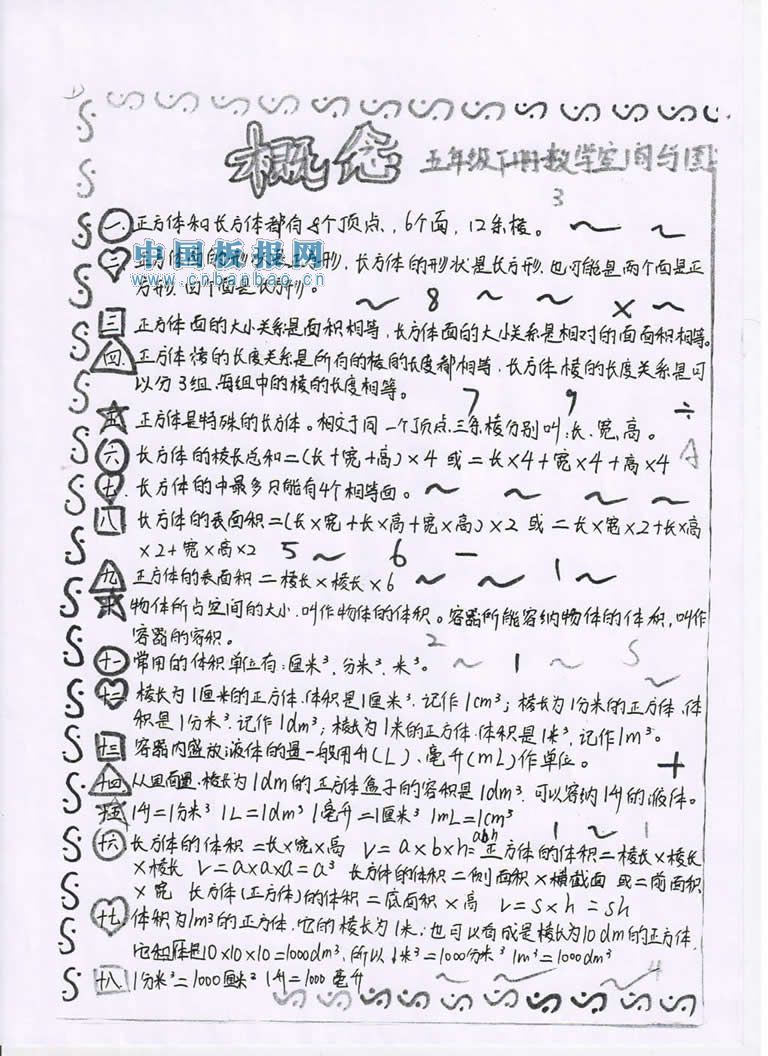 概念 五年级下册数学空间与图
3
一 正方体和长方体都有8个顶点,6个面,12条棱。
中国板报网
www.cnbanbao.cn
二 正方体面的形状是正方形,长方体的形状是长方形,也可能是两个面是正
方形,四个面是长方形。
8 ×
三 正方体面的大小关系是面积相等,长方体面的大小关系是相对的面面积相等。
四 正方体棱的长度关系是所有的棱的长度都相等,长方体棱的长度关系是可
以分3组,每组中的棱的长度相等。
7 9 ÷
五 正方体是特殊的长方体。相交于同一个顶点三条棱分别叫:长、宽、高。
六 长方体的棱长总和=(长+宽+高)×4 或=长×4+宽×4+高×4
七 长方体的中最多只能有4个相等面。
八 长方体的表面积=(长×宽+长×高+宽×高)×2 或=长×宽×2+长×高
×2+宽×高×2 5 6 -
九 正方体的表面积=棱长×棱长×6 1
十 物体所占空间的大小,叫作物体的体积。容器所能容纳物体的体积,叫作
容器的容积。 2
十一 常用的体积单位有:厘米³,分米³,米³。 1
十二 棱长为1厘米的正方体,体积是1厘米³,记作1cm³;棱长为1分米的正方体,体
积是1分米³,记作1dm³;棱长为1米的正方体,体积是1米³,记作1m³。
十三 容器内盛放液体的量一般用升(L)、毫升(mL)作单位。
+
十四 从里面量,棱长为1dm的正方体盒子的容积是1dm³,可以容纳1升的液体。
十五 1升=1分米³ 1L=1dm³ 1毫升=1厘米³ 1mL=1cm³
十六 长方体的体积=长×宽×高 V=a×b×h=abh 正方体的体积=棱长×棱长
×棱长 V=a×a×a=a³ 长方体的体积=侧面积×横截面 或=前面积
×宽 长方体(正方体)的体积=底面积×高 V=S×h=Sh
十七 体积为1m³的正方体,它的棱长为1米;也可以看成是棱长为10dm的正方体,
10×10×10=1000dm³,所以1米³=1000分米³ 1m³=1000dm³
十八 1分米³=1000厘米³ 1升=1000毫升
4